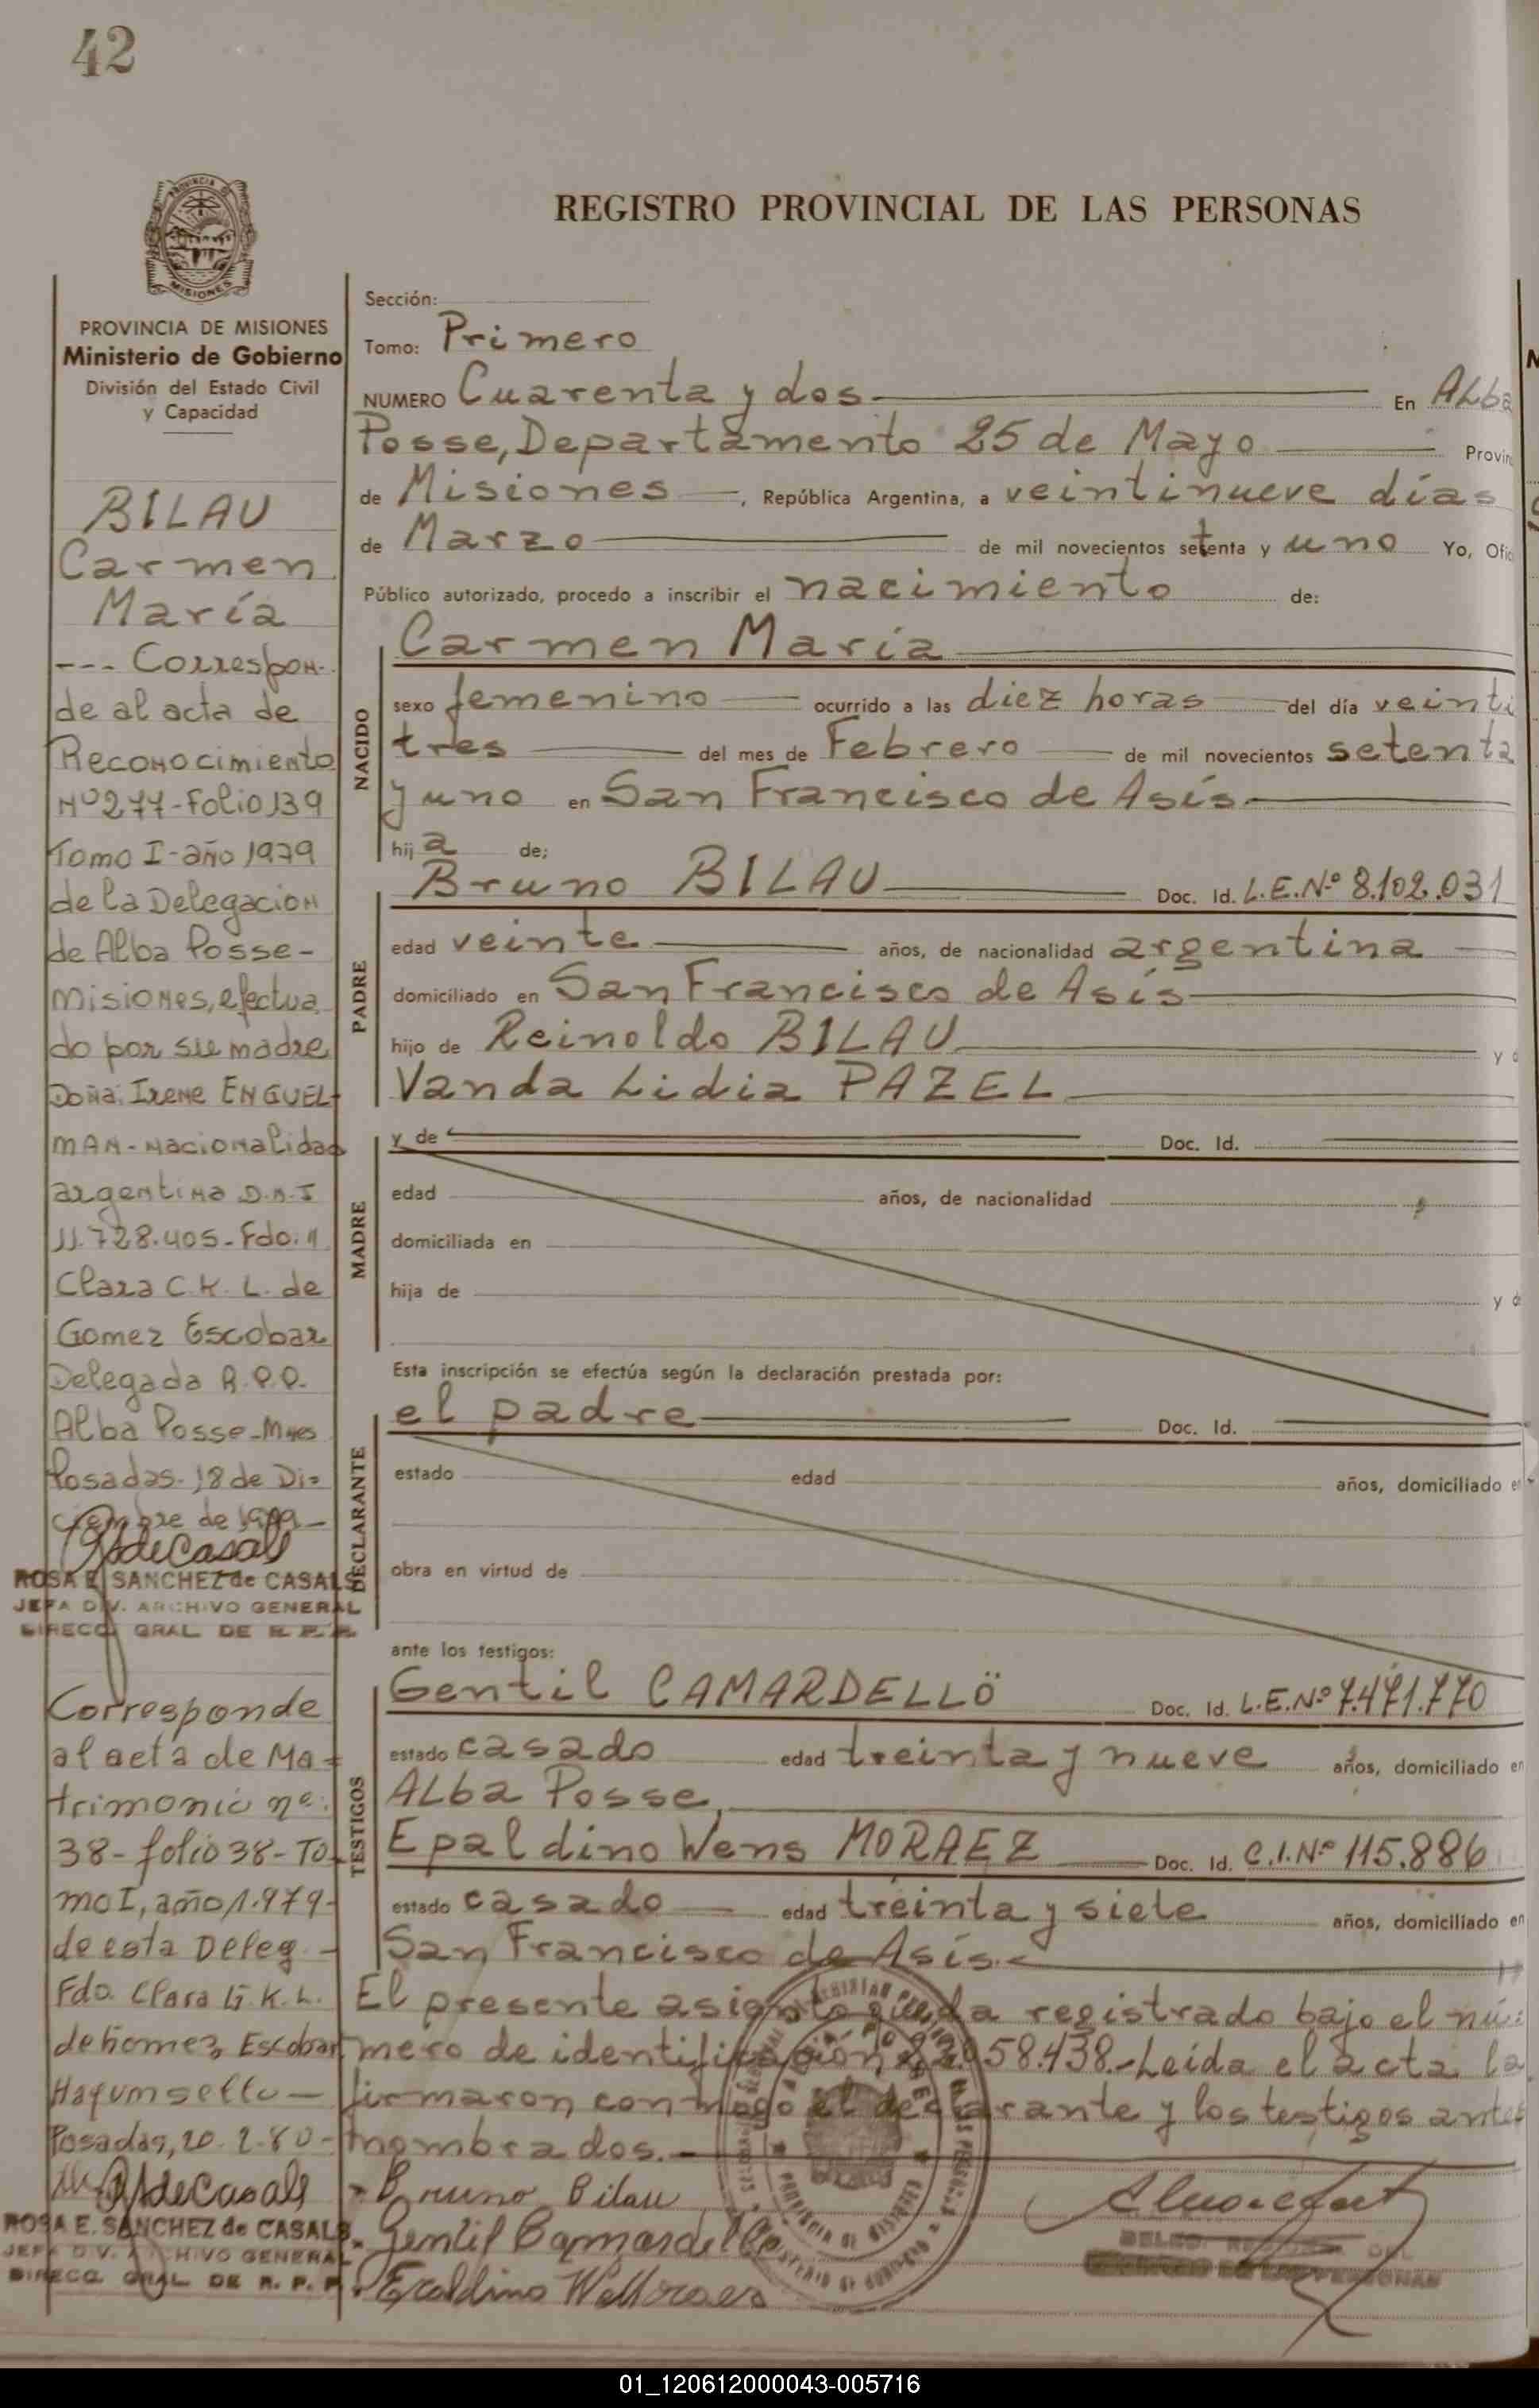 42
REGISTRO PROVINCIAL DE LAS PERSONAS
PROVINCIA DE MISIONES
PROVINCIA DE MISIONES
Ministerio de Gobierno
División del Estado Civil
y Capacidad
BILAU
Carmen
María
--- Correspon-
de al acta de
Reconocimiento
Nº 277-Folio 139
Tomo I-año 1979
de la Delegacion
de Alba Posse-
Misiones, efectua
do por su madre
Doña: Irene ENGUEL-
MAN-Nacionalidad
argentina D.N.I
11.728.405-Fdo:
Clara C.K. L. de
Gomez Escobar
Delegada R.P.P.
Alba Posse-Mnes
Posadas-18 de Di=
ciembre de 1979-
ROSA E. SANCHEZ de CASALS
JEFA DIV. ARCHIVO GENERAL
DIRECC. GRAL DE R. P. P.
Corresponde
al acta de Ma-
trimonio nº:
38-folio 38-To-
mo I, año 1.979-
de esta Deleg.-
Fdo. Clara G. K. L.
de Gomez Escobar
Hay un sello-
Posadas, 20-2-80-
ROSA E. SANCHEZ de CASALS
JEFA DIV. ARCHIVO GENERAL
DIRECC. GRAL DE R. P. P.
Sección:
Tomo: Primero
NUMERO Cuarenta y dos En ALba
Posse, Departamento 25 de Mayo Provin
de Misiones, República Argentina, a veintinueve días
de Marzo de mil novecientos setenta y uno Yo, Ofic
Público autorizado, procedo a inscribir el nacimiento de:
NACIDO
Carmen María
sexo femenino ocurrido a las diez horas del día veinti
tres del mes de Febrero de mil novecientos setenta
y uno en San Francisco de Asís
hija de:
PADRE
Bruno BILAU Doc. Id. L.E.Nº 8.102.031
edad veinte años, de nacionalidad argentina
domiciliado en San Francisco de Asís
hijo de Reinoldo BILAU y d
Vanda Lidia PAZEL
MADRE
y de Doc. Id.
edad años, de nacionalidad
domiciliada en
hija de y d
Esta inscripción se efectúa según la declaración prestada por:
DECLARANTE
el padre Doc. Id.
estado edad años, domiciliado en
obra en virtud de
ante los testigos:
TESTIGOS
Gentil CAMARDELLÖ Doc. Id. L.E.Nº 7.471.770
estado casado edad treinta y nueve años, domiciliado en
ALba Posse,
Epaldino Wens MORAEZ Doc. Id. C.I.Nº 115.886
estado casado edad treinta y siete años, domiciliado en
San Francisco de Asís.-
El presente asiento queda registrado bajo el nú:
mero de identificación 058.438.-Leída el acta la
firmaron conmigo el declarante y los testigos antes
nombrados.-
Bruno Bilau
Gentil Camardello
01_120612000043-005716